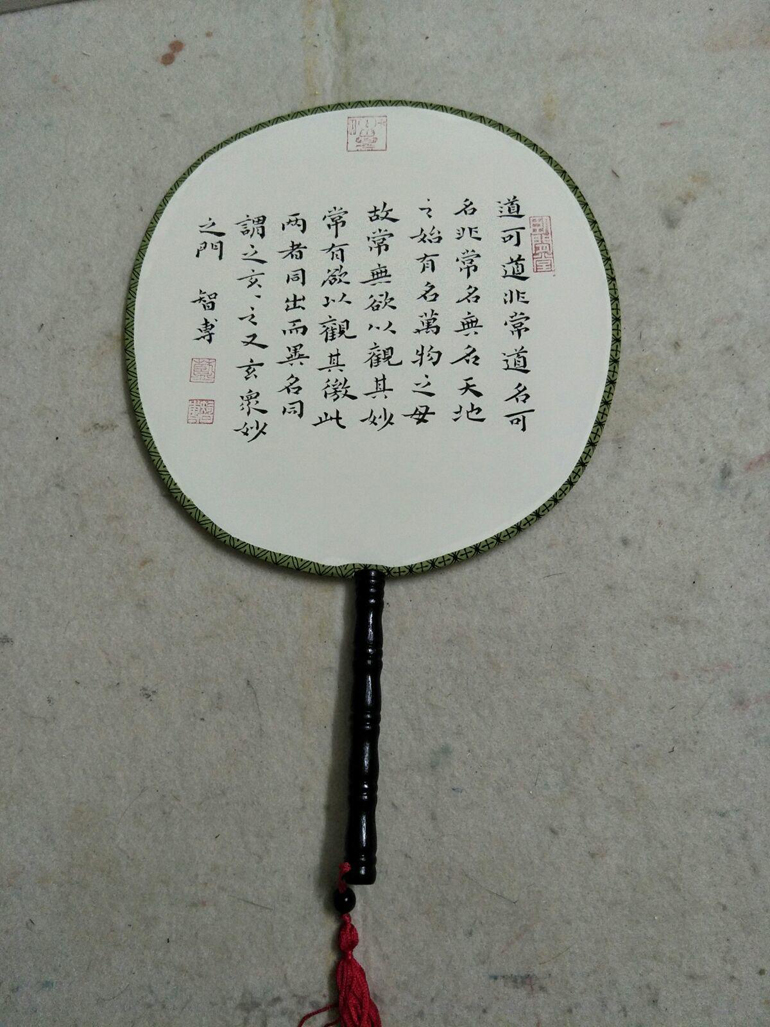 道可道非常道名可
名非常名無名天地
之始有名萬物之母
故常無欲以觀其妙
常有欲以觀其徼此
两者同出而異名同
謂之玄之又玄眾妙
之門 智博